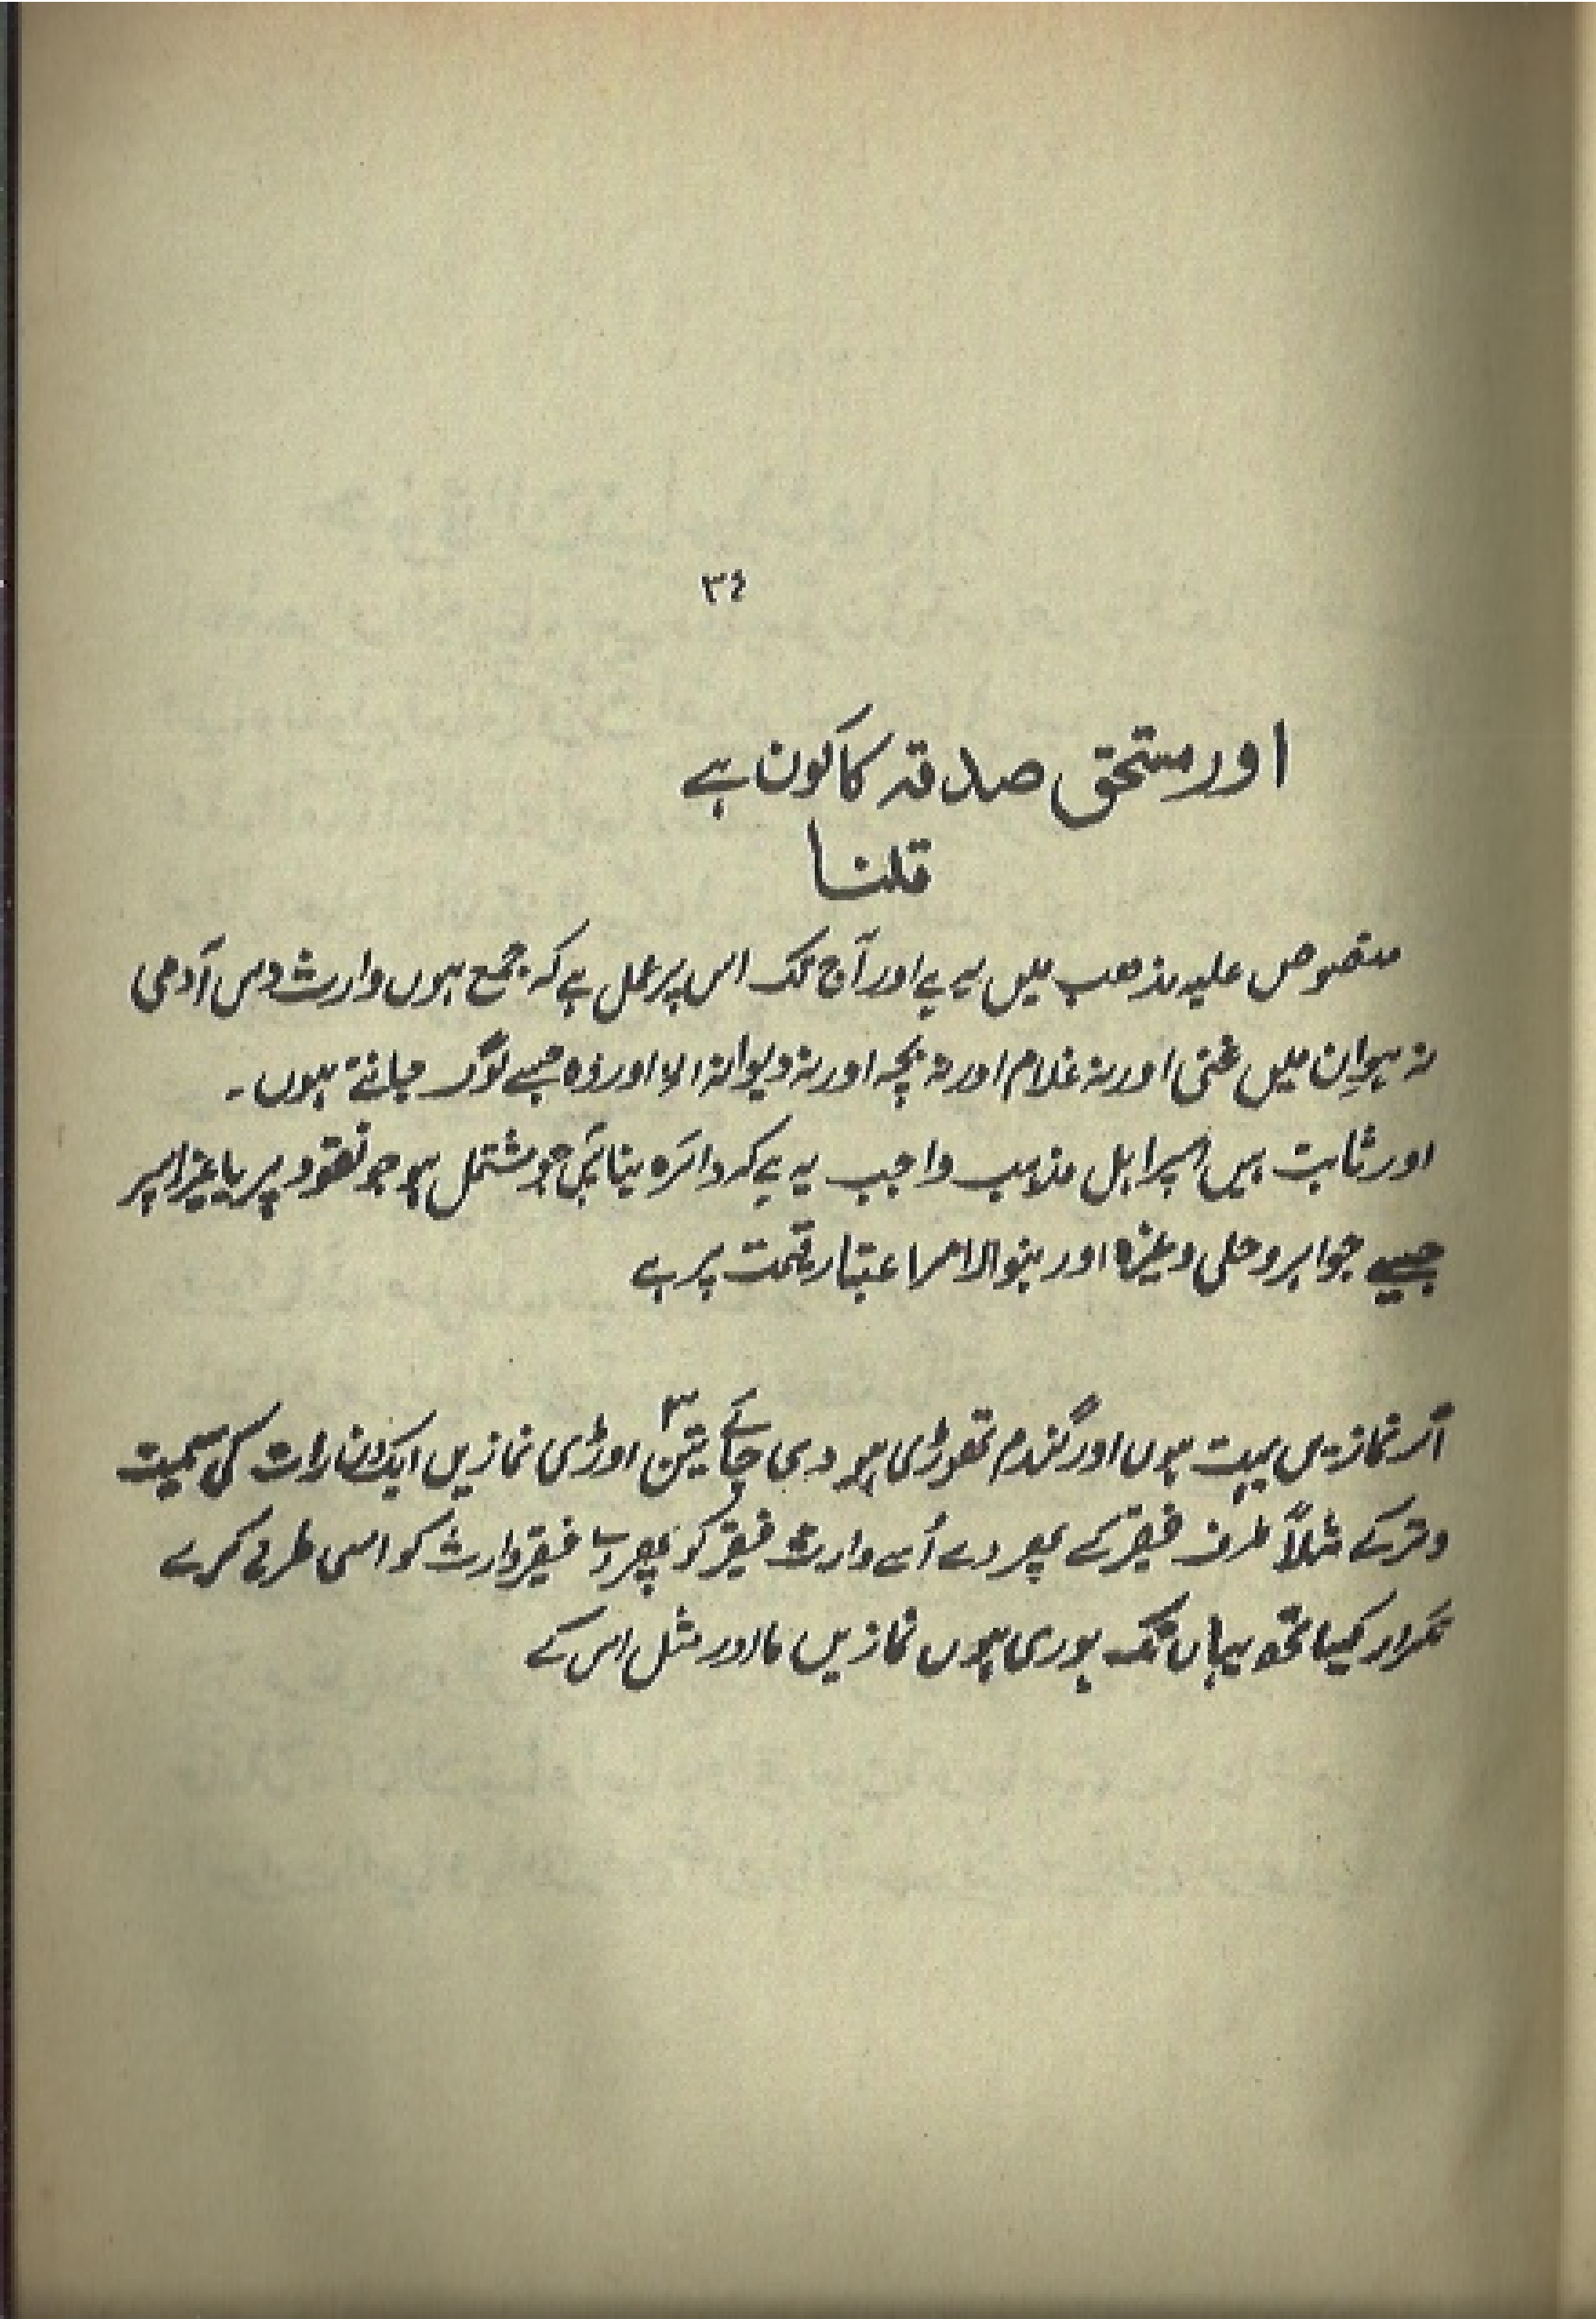 ٣٤
اور مستحق صدقہ کا کون ہے
قلنا
منصوص علیہ مذھب میں یہ ہے اور آج تک اس پر عمل ہے کہ جمع ہوں وارث دس آدمی
نہ ہو اِن میں غنی اور نہ غلام اور نہ بچہ اور نہ دیوانہ الا اور وہ جسے لوگ جانتے ہوں۔
اور ثابت ہیں اہل مذہب واجب یہ ہے کہ دائرہ جو مشتمل ہو جو نقود پر یا غیر اسپر
جیسے جواہر و حلی وغیرہ اور اعتبار قیمت پر ہے
اگر نمازیں بہت ہوں اور گندم تھوڑی ہو دی جائے تین ٣ اوڑی نمازیں ایک دن رات کی سمیت
وتر کے مثلاً طرف فقیر کے پھر دے اُسے وارث فقیر کو پھر دے فقیر وارث کو اسی طرح کرے
تکرار کیا تھو یہاں تک پوری ہوں نمازیں اور مثل اس کے